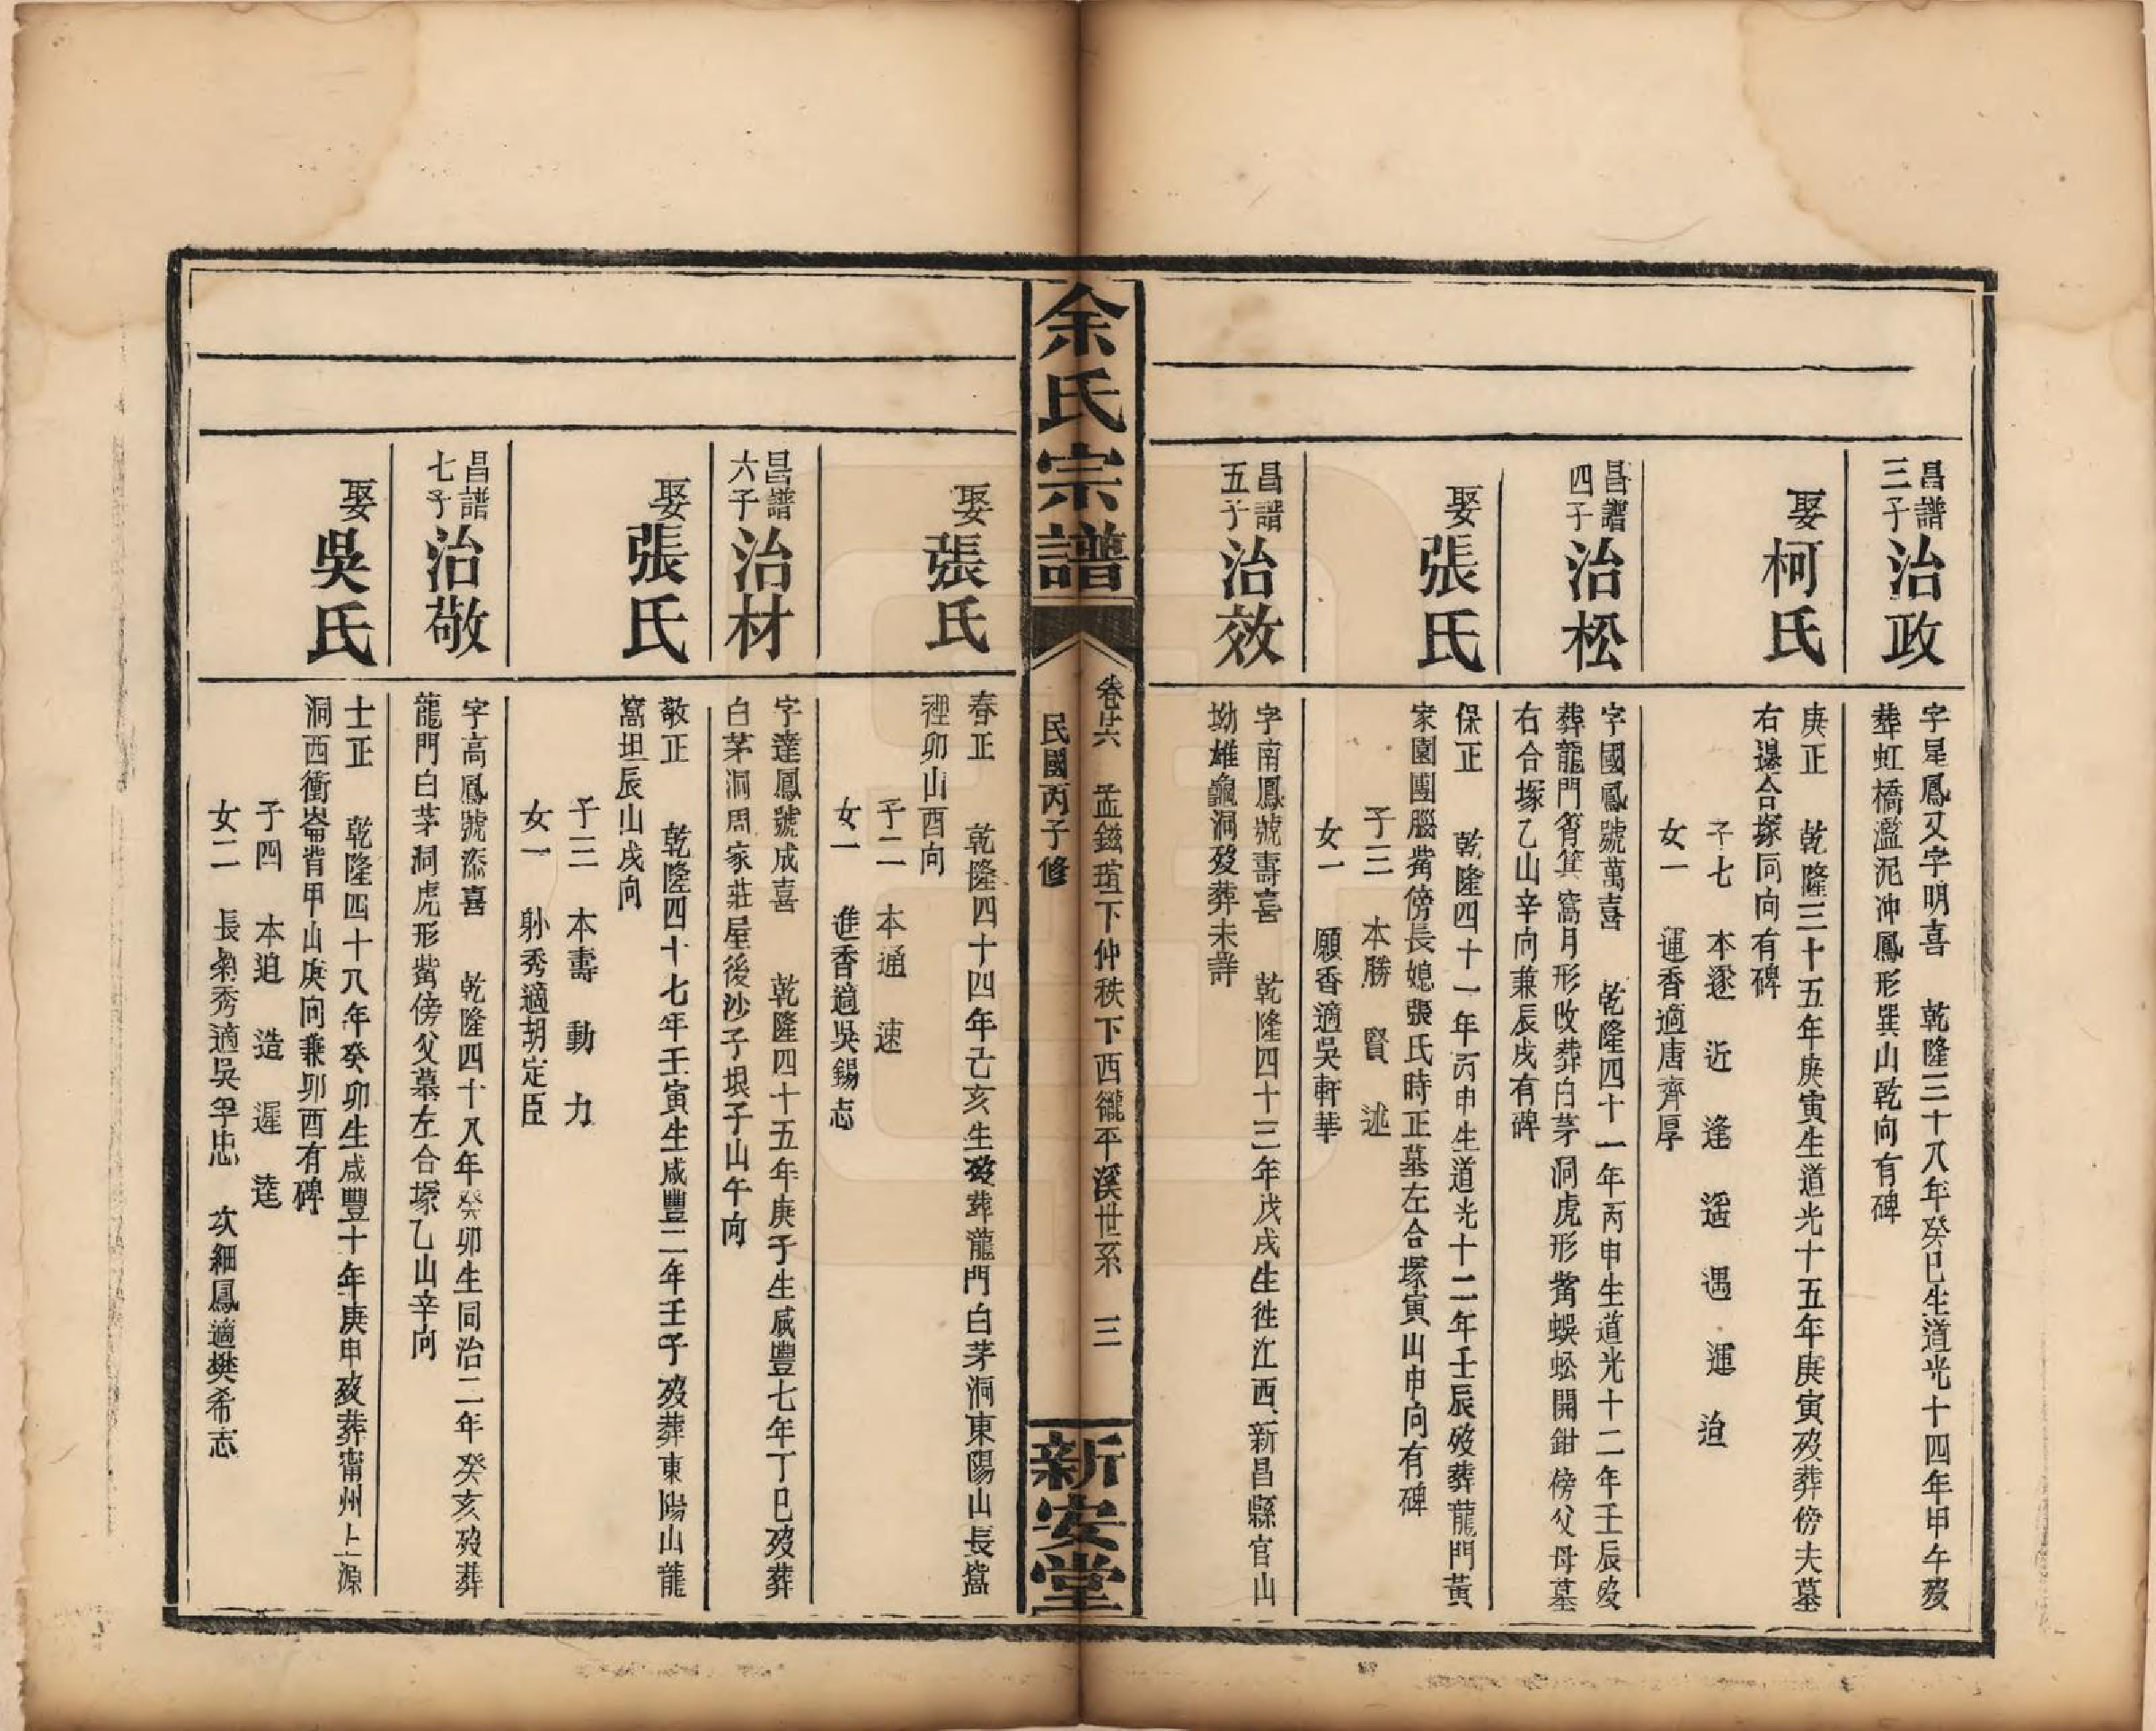 昌譜三子 治政
字星鳳又字明喜 乾隆三十八年癸巳生道光十四年甲午歿
葬虹橋濫泥冲鳳形巽山乾向有碑
娶柯氏
庚正 乾隆三十五年庚寅生道光十五年庚寅歿葬傍夫墓
右邊合塚同向有碑
子七 本逐 近 逢 遥 遇 運 迨
女一 運香適唐齊厚
昌譜四子 治松
字國鳳號萬喜 乾隆四十一年丙申生道光十二年壬辰歿
葬龍門筲箕窩月形改葬白茅洞虎形嘴蜈蚣開鉗傍父母墓
右合塚乙山辛向兼辰戌有碑
娶張氏
保正 乾隆四十一年丙申生道光十二年壬辰歿葬龍門黃
家園團腦嘴傍長媳張氏時正墓左合塚寅山申向有碑
子三 本勝 賢 述
女一 願香適吳軒華
昌譜五子 治效
字南鳳號壽喜 乾隆四十三年戊戌生徃江西新昌縣官山
坳雄龜洞歿葬未詳
余氏宗譜
卷廿六 孟鎡瑄下仲秩下西㲼平溪世系 三
民國丙子修
新安堂
娶張氏
春正 乾隆四十四年己亥生歿葬龍門白茅洞東陽山長窩
裡卯山酉向
子二 本通 速
女一 進香適吳錫志
昌譜六子 治材
字達鳳號成喜 乾隆四十五年庚子生咸豐七年丁巳歿葬
白茅洞周家莊屋後沙子垠子山午向
娶張氏
敬正 乾隆四十七年壬寅生咸豐二年壬子歿葬東陽山龍
窩坦辰山戌向
子三 本壽 動 力
女一 躲秀適胡定臣
昌譜七子 治敬
字高鳳號添喜 乾隆四十八年癸卯生同治二年癸亥歿葬
龍門白茅洞虎形嘴傍父墓左合塚乙山辛向
娶吳氏
士正 乾隆四十八年癸卯生咸豐十年庚申歿葬甯州上源
洞西衝崙背甲山庚向兼卯酉有碑
子四 本追 造 遲 達
女二 長菊秀適吳孚忠 次細鳳適樊希志